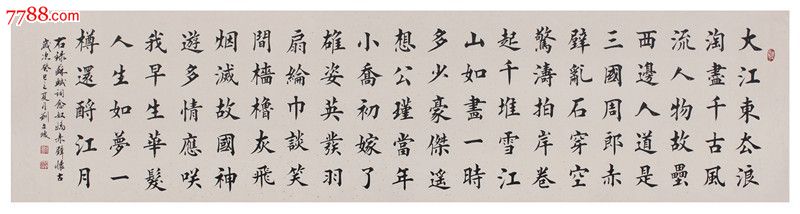 7788.com
大江東去浪
淘盡千古風
流人物故壘
西邊人道是
三國周郎赤
壁亂石穿空
驚濤拍岸卷
起千堆雪江
山如畫一時
多少豪傑遙
想公瑾當年
小喬初嫁了
雄姿英發羽
扇綸巾談笑
間檣櫓灰飛
烟滅故國神
遊多情應咲
我早生華髮
人生如夢一
樽還酹江月
右錄蘇軾詞念奴嬌赤壁懷古
歲次癸巳之夏月劉